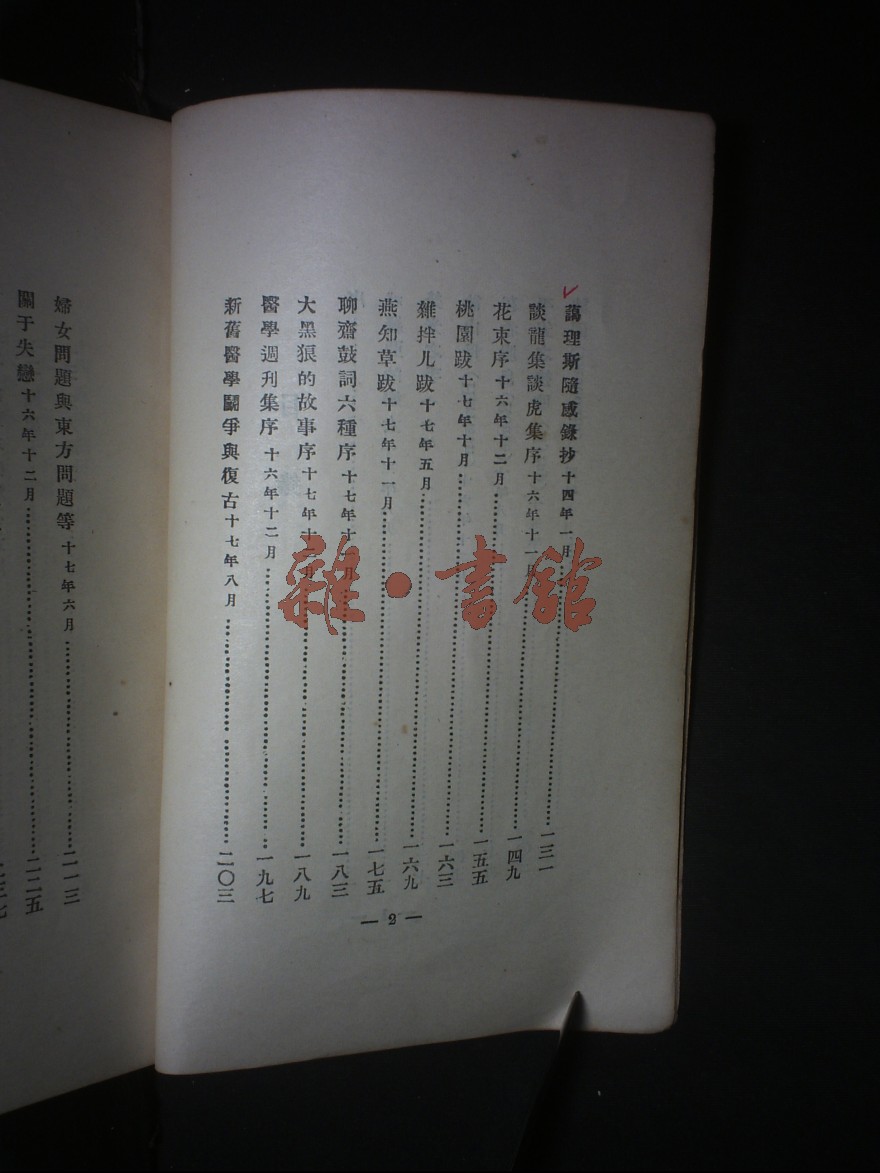 藹理斯隨感錄抄十四年一月……一三一
談龍集談虎集序十六年十一月……一四九
花束序十六年十二月……一五五
桃園跋十七年十月……一六三
雜拌儿跋十七年五月……一六九
燕知草跋十七年十一月……一七五
聊齋鼓詞六種序十七年十月……一八三
大黑狼的故事序十七年十一月……一八九
醫學週刊集序十六年十二月……一九七
新舊醫學鬭爭與復古十七年八月……二〇三
— 2 —
婦女問題與東方問題等十七年六月……二一三
關于失戀十六年十二月……二二五
雜·書館